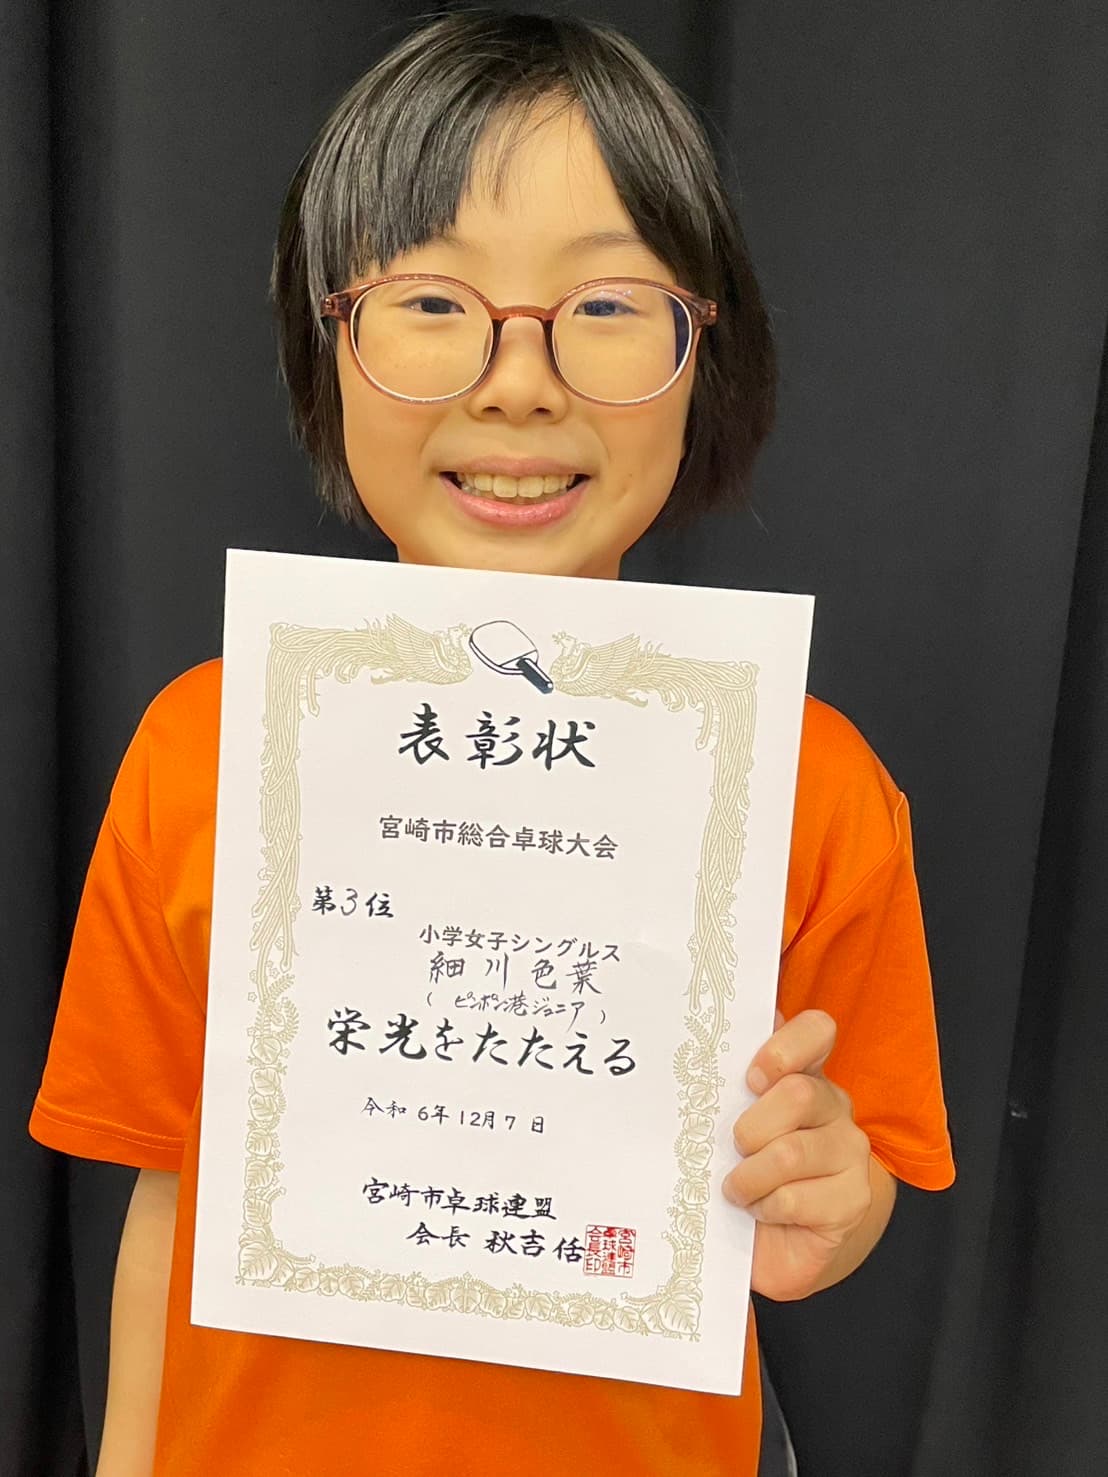 表彰状
宮崎市総合卓球大会
第3位
小学女子シングルス
細川色葉
(ピンポン港ジュニア)
栄光をたたえる
令和6年12月7日
宮崎市卓球連盟
会長 秋吉 恬
宮崎市
卓球連盟
会長印